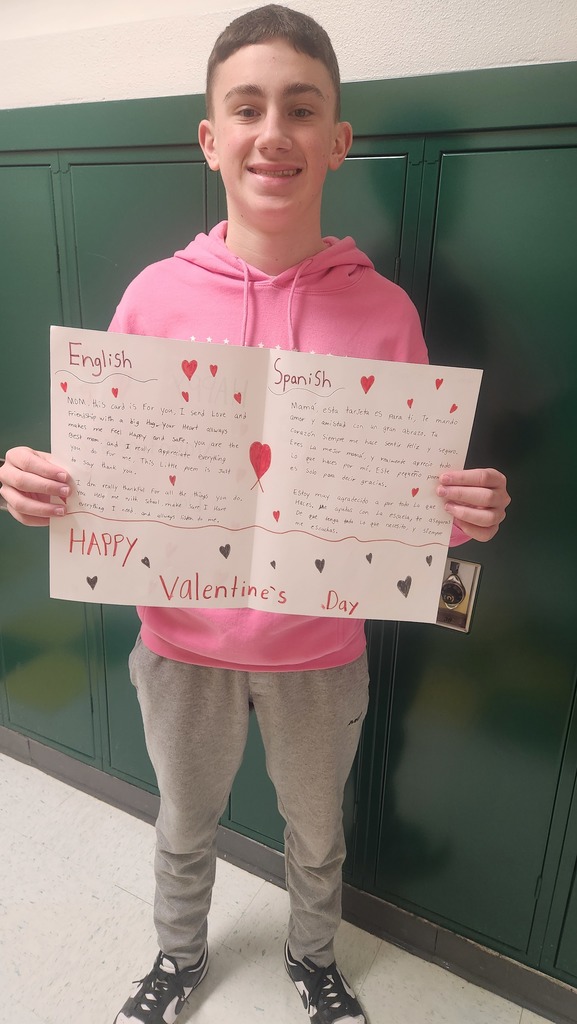 English
MOM, this card is For you, I send Love and
Friendship with a big Hug. Your Heart always
makes me Feel Happy and safe, you are the
Best mom, and I really appreciate everything
you do For me. This Little poem is Just
to say thank you.
I am really thankful For all the things you do,
You Help me with school make sure I Have
everything I need and always listen to me.
Spanish
Mamá, esta tarjeta es para ti, Te mando
amor y amistad con un gran abrazo. Tu
corazón siempre me hace sentir feliz y seguro,
Eres la mejor mamá, y realmente aprecio todo
lo que haces por mí. Este pequeño poema
es solo para decir gracias.
Estoy muy agradecido a por todo lo que
Haces, me ayudas con la escuela, te aseguras
De que tenga todo lo que necesito, y siempre
me escuchas.
HAPPY
Valentine's Day